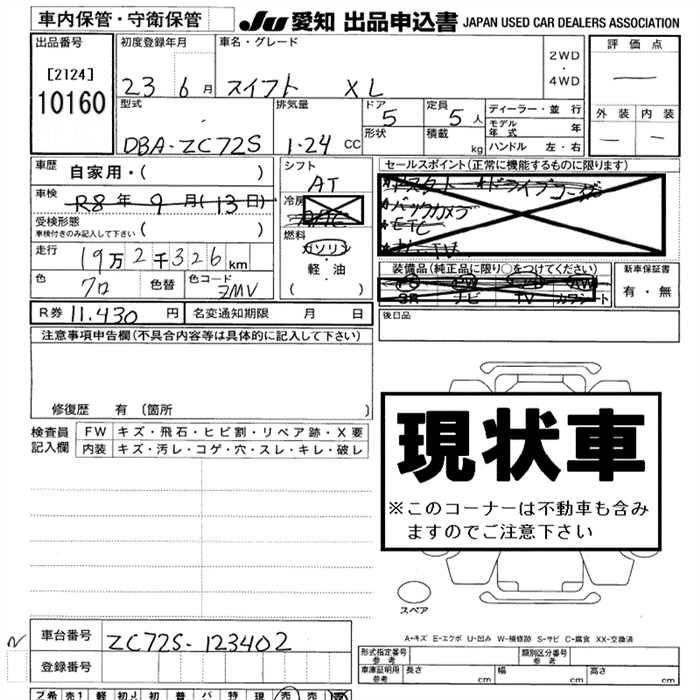 車内保管・守衛保管
JU 愛知 出品申込書 JAPAN USED CAR DEALERS ASSOCIATION
出品番号
[2124]
10160
初度登録年月
23 6 月
車名・グレード
スイフト XL
2WD
・
4WD
評価点
—
外装 内装
— —
型式
DBA-ZC72S
排気量
1.24 CC
ドア
5
形状
定員
5人
積載
kg
ディーラー・並行
モデル年式 年
ハンドル 左・右
車歴 自家用・( )
車検 R8年9月(13日)
受検形態
車検付きのみ記入して下さい ( )
走行 19万2千326km
色 クロ
色替
色コード ZMV
シフト
AT
冷房
燃料
ガソリン
・
軽・油
( )
セールスポイント(正常に機能するものに限ります)
バックカメラ
ETC
装備品(純正品に限り○をつけてください)
PS PW AW
SR ナビ TV カワシート
新車保証書
有・無
R券 11.430 円
名変通知期限 月 日
後日品
注意事項申告欄(不具合内容等は具体的に記入して下さい)
修復歴 有 〔箇所 〕
検査員
記入欄
FW キズ・飛石・ヒビ割・リペア跡・X要
内装 キズ・汚レ・コゲ・穴・スレ・キレ・破レ
現状車
※このコーナーは不動車も含み
ますのでご注意下さい
スペア
A-キズ E-エクボ U-凹み W-補修跡 S-サビ C-腐食 XX-交換済
車台番号 ZC72S-123402
登録番号
形式指定番号
参考
類別区分番号
参考
車庫証明用
参考
長さ cm 幅 cm 高さ cm